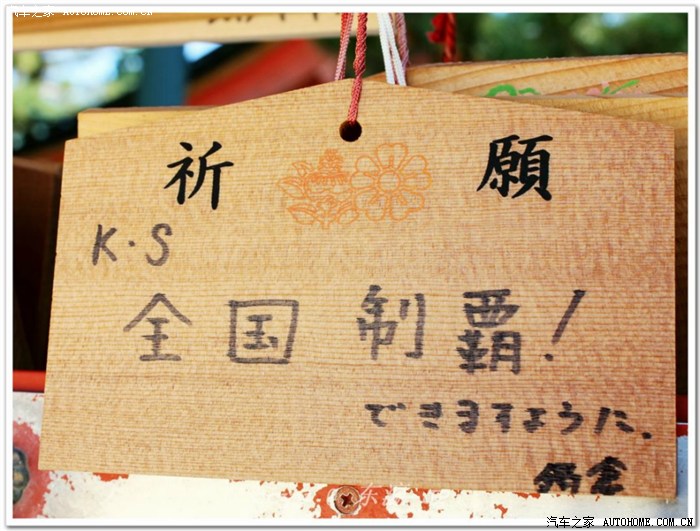 汽车之家 WWW.AUTOHOME.COM.CN
祈 願
K・S
全国制覇!
できますように.
汽车之家 AUTOHOME.COM.CN